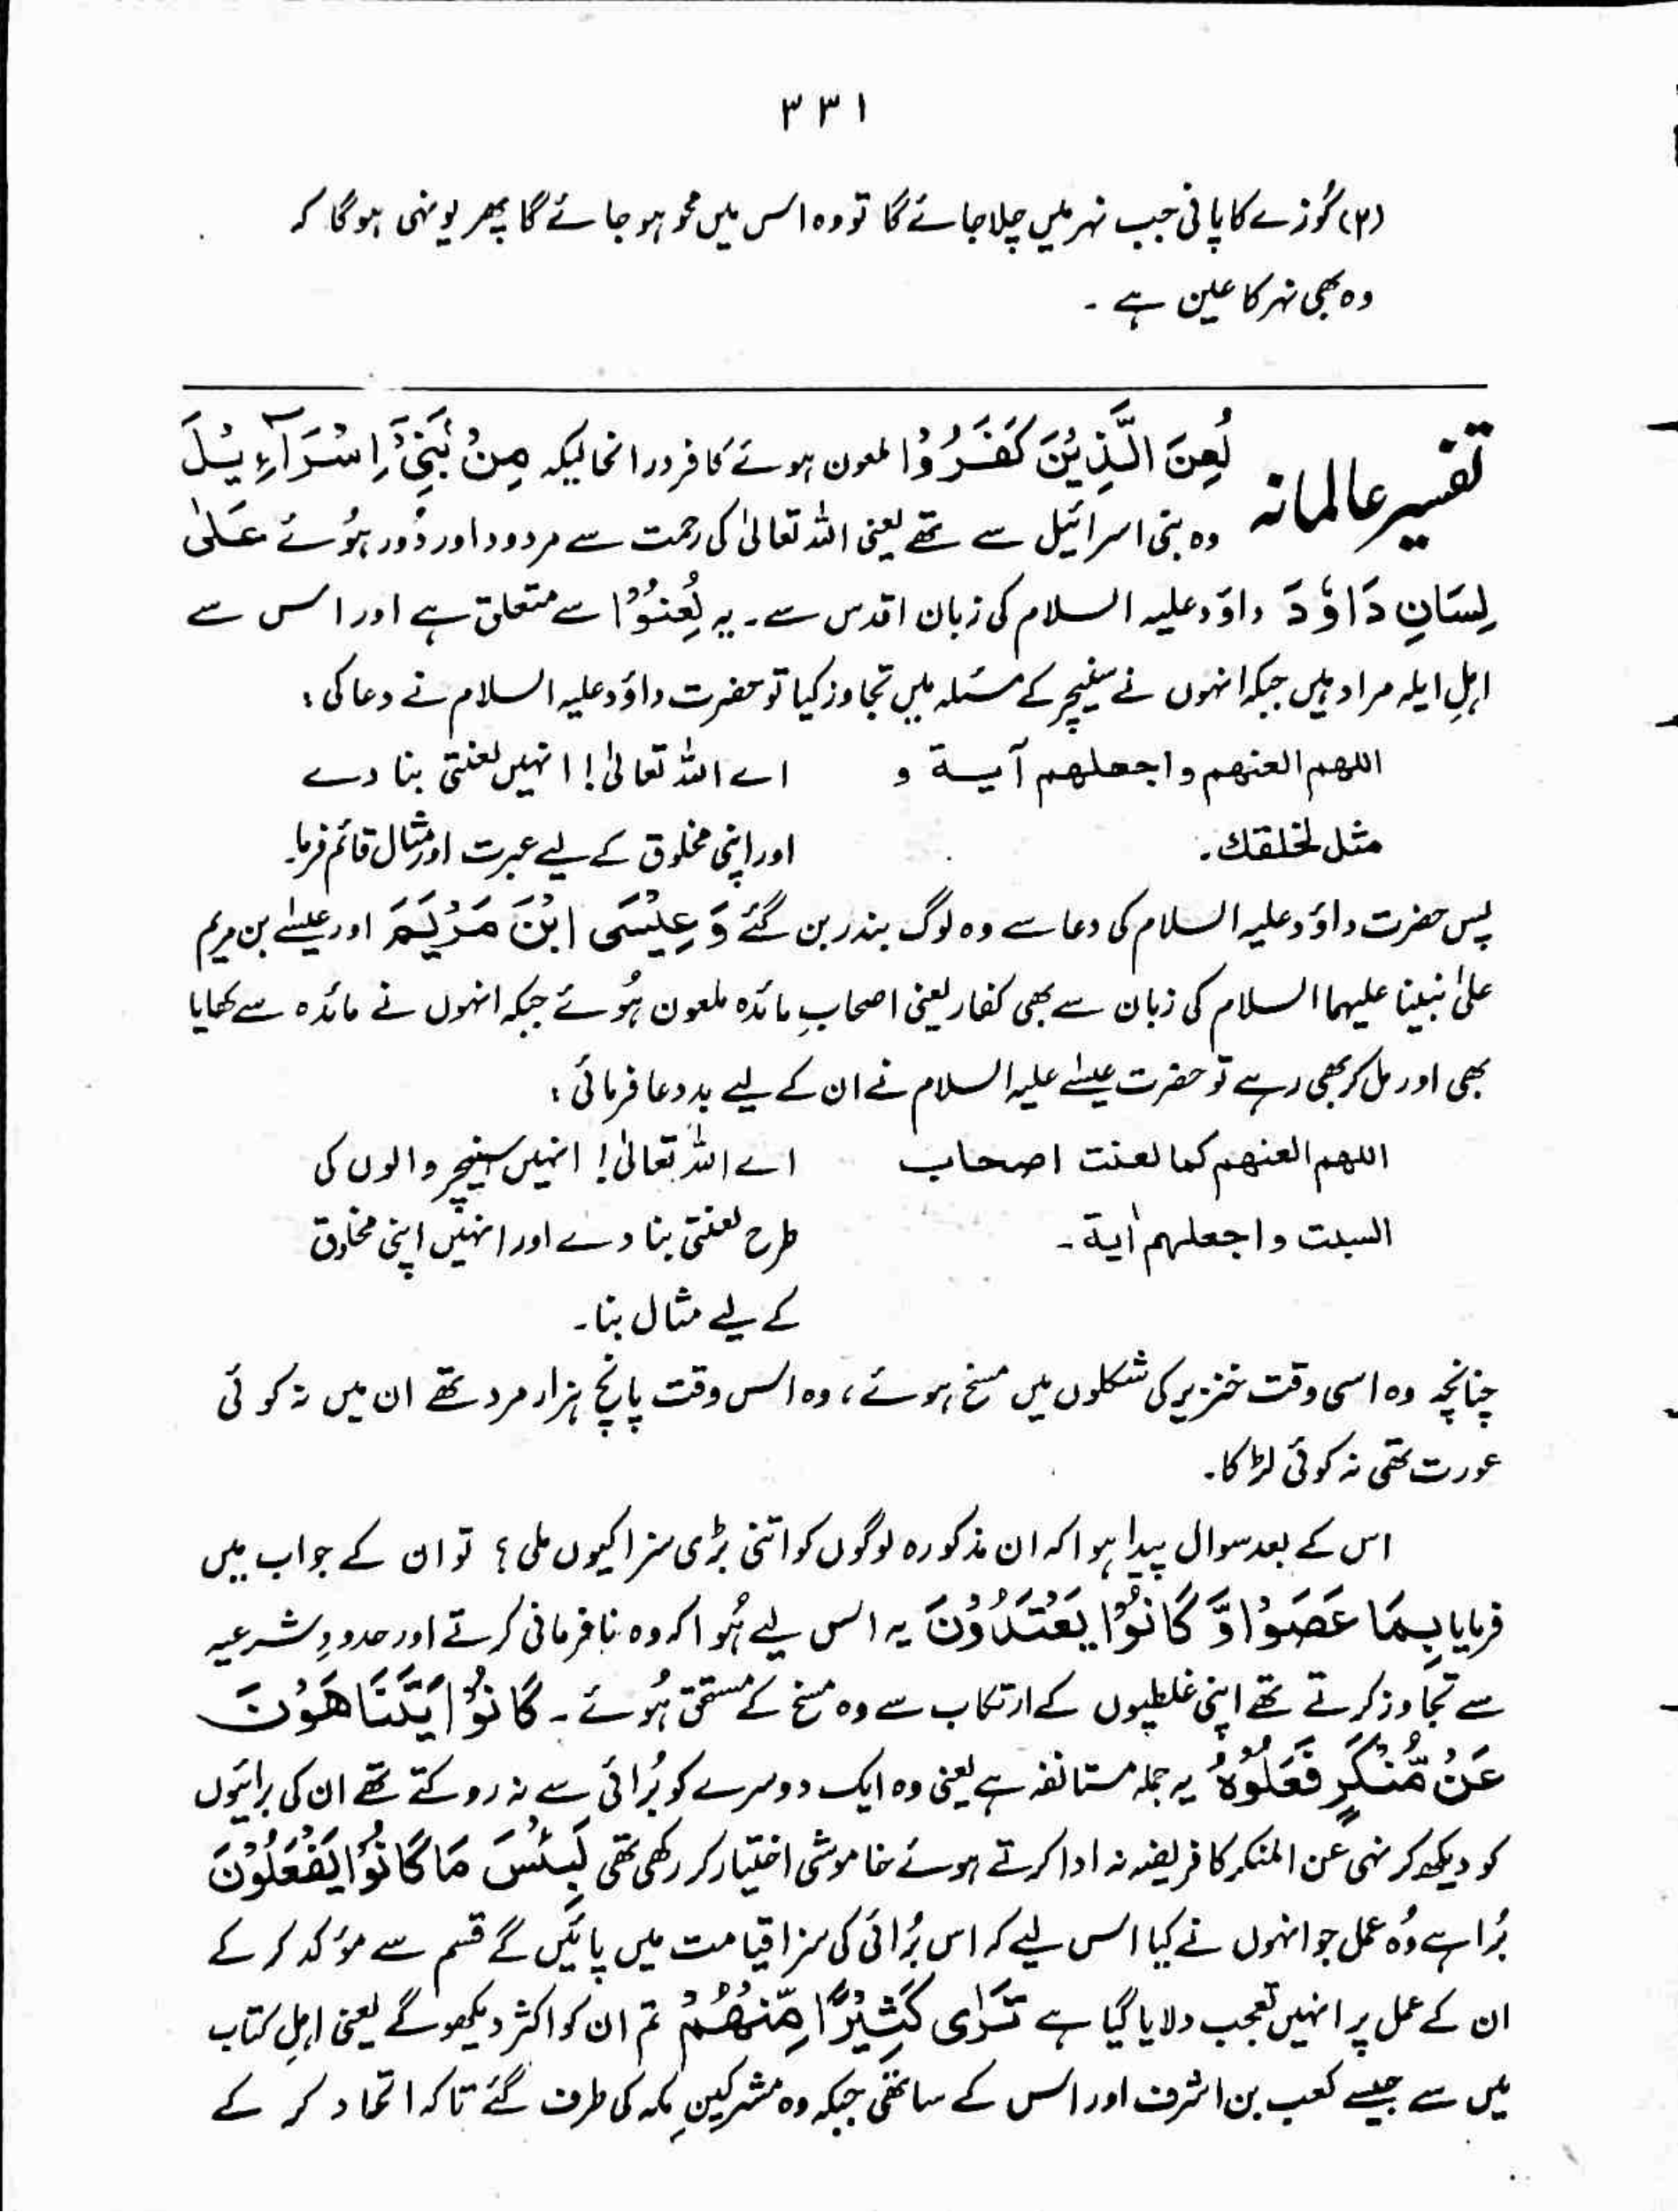 ۳۳۱
(۲) کُوزے کا پانی جب نہر میں چلا جائے گا تو وہ اس میں محو ہو جائے گا پھر یونہی ہو گا کہ
وہ بھی نہر کا عین ہے ۔
تفسیر عالمانہ
لُعِنَ الَّذِيْنَ كَفَرُوْا لمعون ہوئے کافر درانحالیکہ مِنْ بَنِيْٓ اِسْرَآءِيْلَ
وہ بنی اسرائیل سے تھے یعنی اللہ تعالیٰ کی رحمت سے مردود اور دُور ہُوئے عَلٰى
لِسَانِ دَاوٗدَ داؤد علیہ السلام کی زبان اقدس سے ۔ یہ لُعِنُوْا سے متعلق ہے اور اس سے
اہلِ ایلہ مراد ہیں جبکہ انہوں نے سنیچر کے مسئلہ میں تجاوز کیا تو حضرت داؤد علیہ السلام نے دعا کی :
اللهم العنهم واجعلهم آية و اے اللہ تعالیٰ! انہیں لعنتی بنا دے
مثل لخلقك۔ اور اپنی مخلوق کے لیے عبرت اور مثال قائم فرما۔
پس حضرت داؤد علیہ السلام کی دعا سے وہ لوگ بندر بن گئے وَعِيْسَى ابْنَ مَرْيَمَ اور عیسٰے بن مریم
علیٰ نبینا علیہما السلام کی زبان سے بھی کفار یعنی اصحابِ مائدہ ملعون ہُوئے جبکہ انہوں نے مائدہ سے کھایا
بھی اور مل کر بھی رہے تو حضرت عیسٰے علیہ السلام نے ان کے لیے بددعا فرمائی :
اللهم العنهم كما لعنت اصحاب اے اللہ تعالیٰ! انہیں سنیچر والوں کی
السبت واجعلهم اٰية ۔ طرح لعنتی بنا دے اور انہیں اپنی مخلوق
کے لیے مثال بنا ۔
چنانچہ وہ اسی وقت خنزیر کی شکلوں میں مسخ ہوئے ، وہ اس وقت پانچ ہزار مرد تھے ان میں نہ کوئی
عورت تھی نہ کوئی لڑکا ۔
اس کے بعد سوال پیدا ہوا کہ ان مذکورہ لوگوں کو اتنی بڑی سزا کیوں ملی ؟ تو ان کے جواب میں
فرمایا بِمَا عَصَوْا وَّ كَانُوْا يَعْتَدُوْنَ یہ اس لیے ہُوا کہ وہ نافرمانی کرتے اور حدودِ شرعیہ
سے تجاوز کرتے تھے اپنی غلطیوں کے ارتکاب سے وہ مسخ کے مستحق ہُوئے ۔ كَانُوْا يَتَنَاهَوْنَ
عَنْ مُّنْكَرٍ فَعَلُوْهُ یہ جملہ مستانفہ ہے یعنی وہ ایک دوسرے کو بُرائی سے نہ روکتے تھے ان کی برائیوں
کو دیکھ کر نہی عن المنکر کا فریضہ نہ ادا کرتے ہوئے خاموشی اختیار کر رکھی تھی لَبِئْسَ مَا كَانُوْا يَفْعَلُوْنَ
بُرا ہے وُہ عمل جو انہوں نے کیا اس لیے کہ اس بُرائی کی سزا قیامت میں پائیں گے قسم سے مؤکد کر کے
ان کے عمل پر انہیں تعجب دلایا گیا ہے تَرٰى كَثِيْرًا مِّنْهُمْ تم ان کو اکثر دیکھو گے یعنی اہلِ کتاب
میں سے جیسے کعب بن اشرف اور اس کے ساتھی جبکہ وہ مشرکینِ مکہ کی طرف گئے تاکہ اتحاد کر کے